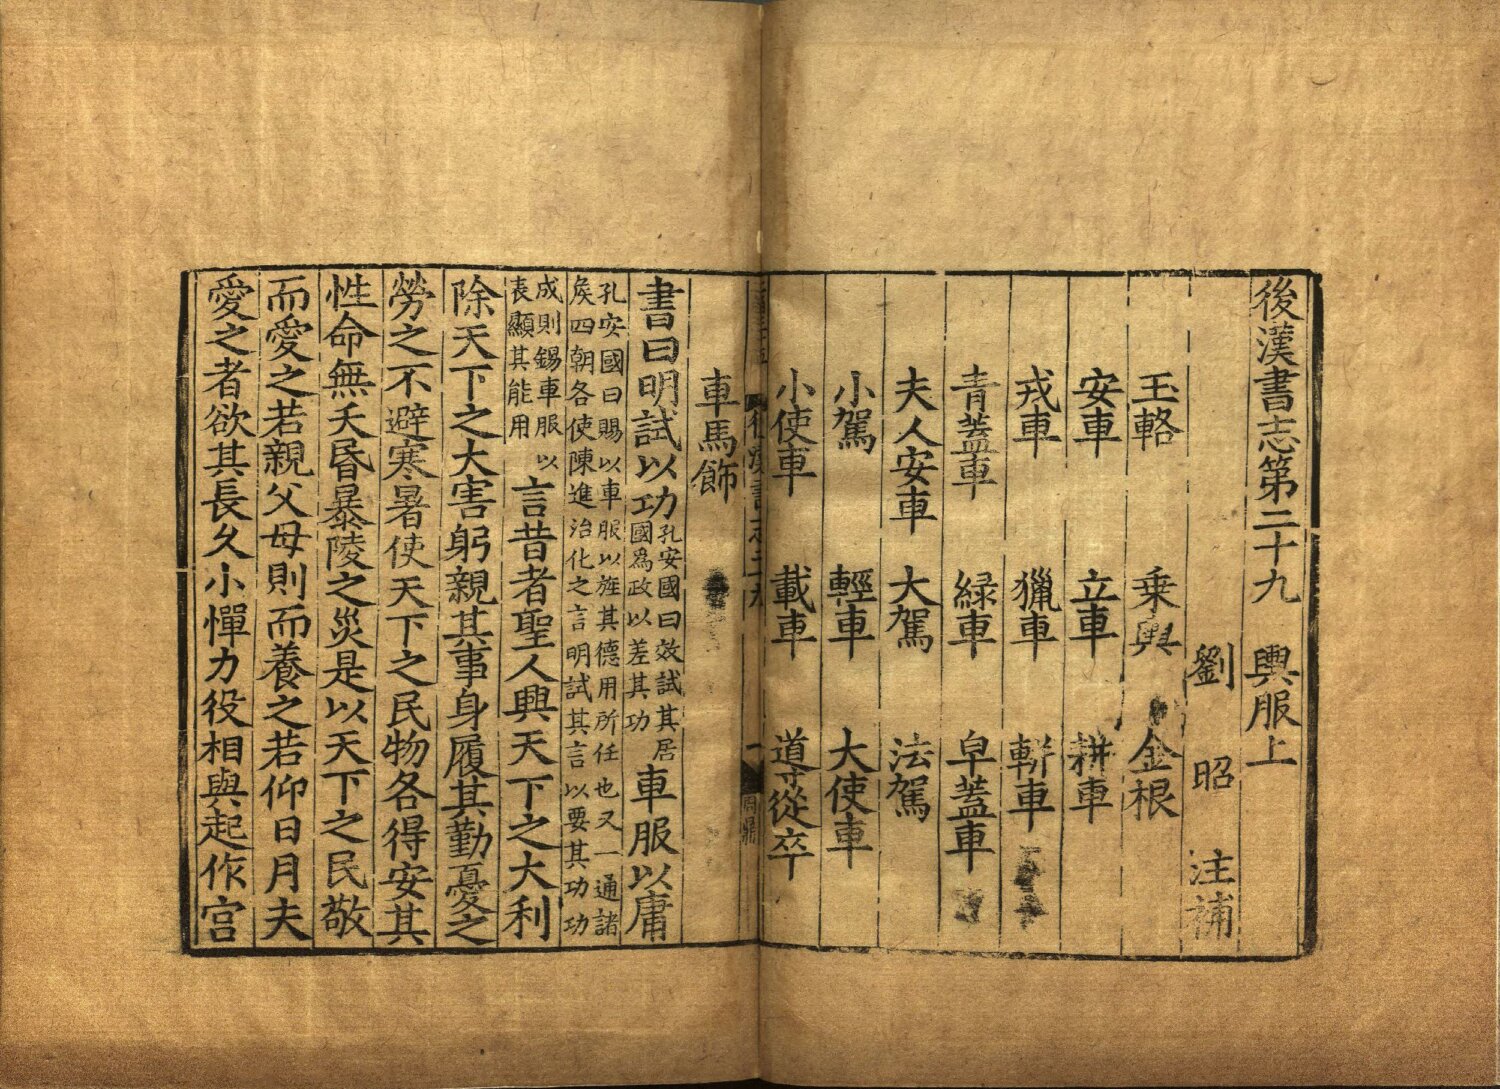 後漢書志第二十九 輿服上
劉 昭 注補
玉輅 乗輿 金根
安車 立車 耕車
戎車 獵車 輧車
青蓋車 緑車 皁蓋車
夫人安車 大駕 法駕
小駕 輕車 大使車
小使車 載車 導從卒
後漢書志二九 一
車馬飾
書曰明試以功孔安國曰效試其居國爲政以差其功車服以庸
孔安國曰賜以車服以旌其德用所任也又一通諸
矦四朝各使陳進治化之言明試其言以要其功功
成則錫車服以表顯其能用言昔者聖人興天下之大利
除天下之大害躬親其事身履其勤憂之
勞之不避寒暑使天下之民物各得安其
性命無夭昬暴陵之災是以天下之民敬
而愛之若親父母則而養之若仰日月夫
愛之者欲其長久小憚力役相與起作宮